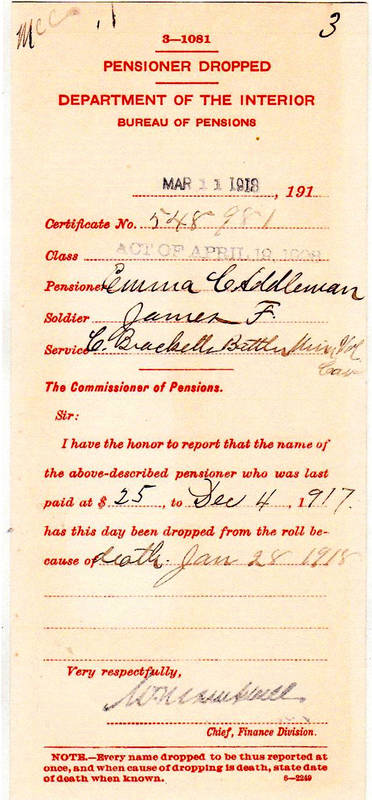 3
3—1081
PENSIONER DROPPED
DEPARTMENT OF THE INTERIOR
BUREAU OF PENSIONS
MAR 11 1918, 191
Certificate No. 548 981
Class ACT OF APRIL 19, 1908
Pensioner Emma C Addleman
Soldier James F.
Service C. Bracketts Battln Minn Vol
Cav
The Commissioner of Pensions.
Sir:
I have the honor to report that the name of
the above-described pensioner who was last
paid at $ 25, to Dec 4, 1917.
has this day been dropped from the roll be-
cause of death. Jan 28 1918
Very respectfully,
Chief, Finance Division.
NOTE.—Every name dropped to be thus reported at
once, and when cause of dropping is death, state date
of death when known.
6—2249